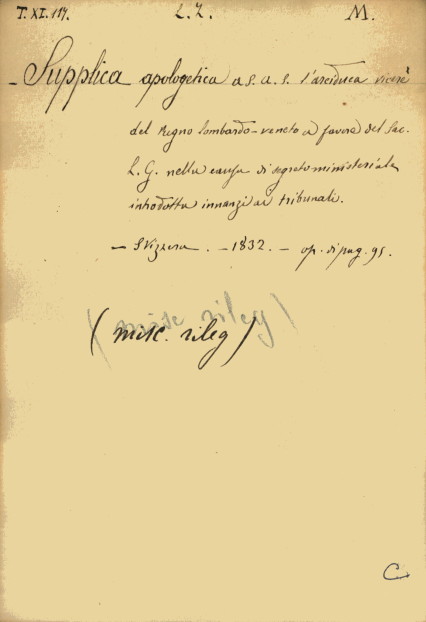 T. XI. 117. L. Z. M.
- Supplica apologetica a S. A. S. l'arciduca vicerè
del Regno lombardo-veneto a favore del Sac.
L. G. nella causa di segreto ministeriale
introdotta innanzi ai tribunali.
- Svizzera. - 1832. - op. di pag. 95.
(misc. rileg)
(misc. rileg)
C